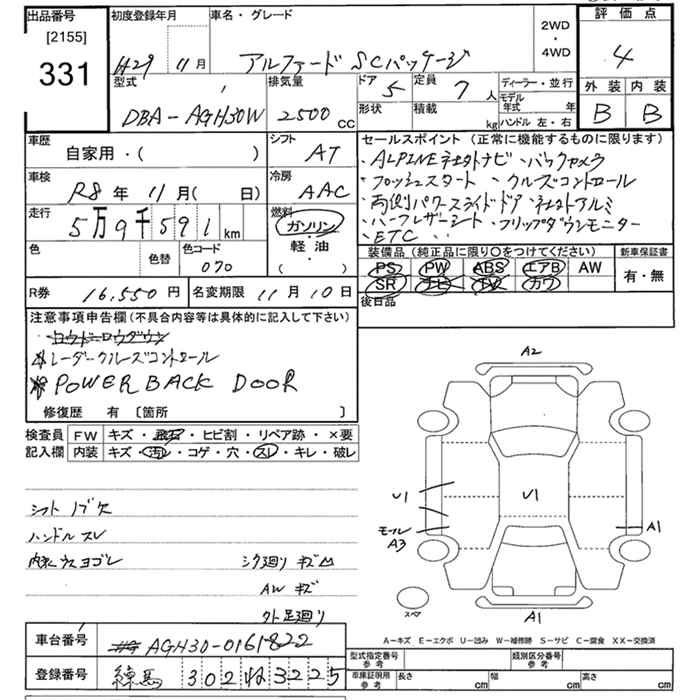 出品番号
[2155]
331
初度登録年月
H29 11月
車名・グレード
アルファード SCパッケージ
2WD
・
4WD
評価点
4
外装 内装
B B
型式
DBA-AGH30W
排気量
2500 CC
ドア 5
形状
定員 7 人
積載 kg
ディーラー・並行
モデル年式 年
ハンドル 左・右
車歴
自家用・( )
シフト
AT
車検
R8年 11月( 日)
冷房
AAC
走行
5万9千591km
燃料
ガソリン
軽油
・( )
色 色替
色コード
070
R券 16,550円
名変期限 11月10日
セールスポイント(正常に機能するものに限ります)
・ALPINE ナビ・バックカメラ
・プッシュスタート ・クルーズコントロール
・両側パワースライドドア アルミ
・ハーフレザーシート・フリップダウンモニター
・ETC
装備品(純正品に限り○をつけてください)
PS PW ABS エアB AW
SR ナビ TV カワ
新車保証書
有・無
後日品
注意事項申告欄(不具合内容等は具体的に記入して下さい)
レーダークルーズコントロール
POWER BACK DOOR
修復歴 有〔箇所 〕
検査員記入欄
FW キズ・飛石・ヒビ割・リペア跡・×要
内装 キズ・汚レ・コゲ・穴・スレ・キレ・破レ
シフトノブ欠
ハンドルスレ
内装ウスヨゴレ
シタ廻りキズ凹
AWキズ
外足廻り
A2
U1
U1
モール
A3
A1
A1
スペア
A-キズ E-エクボ U-凹み W-補修跡 S-サビ C-腐食 XX-交換済
車台番号 AGH30-0161822
登録番号 練馬 302 ね 3225
型式指定番号
参考
類別区分番号
参考
車庫証明用
参考
長さ cm 幅 cm 高さ cm